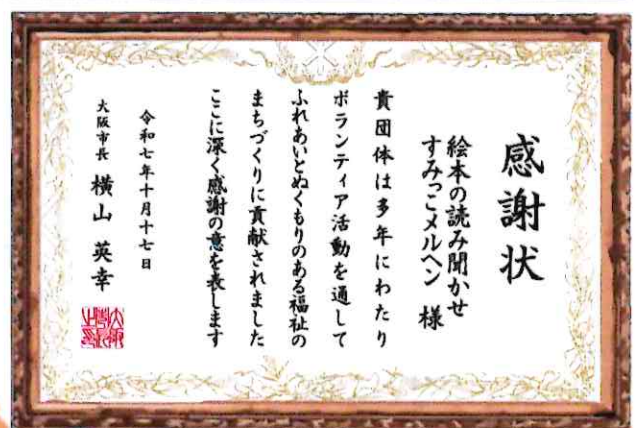 感謝状
絵本の読み聞かせ
すみっこメルヘン 様
貴団体は多年にわたり
ボランティア活動を通して
ふれあいとぬくもりのある福祉の
まちづくりに貢献されました
ここに深く感謝の意を表します
令和七年十月十七日
大阪市長 横山英幸